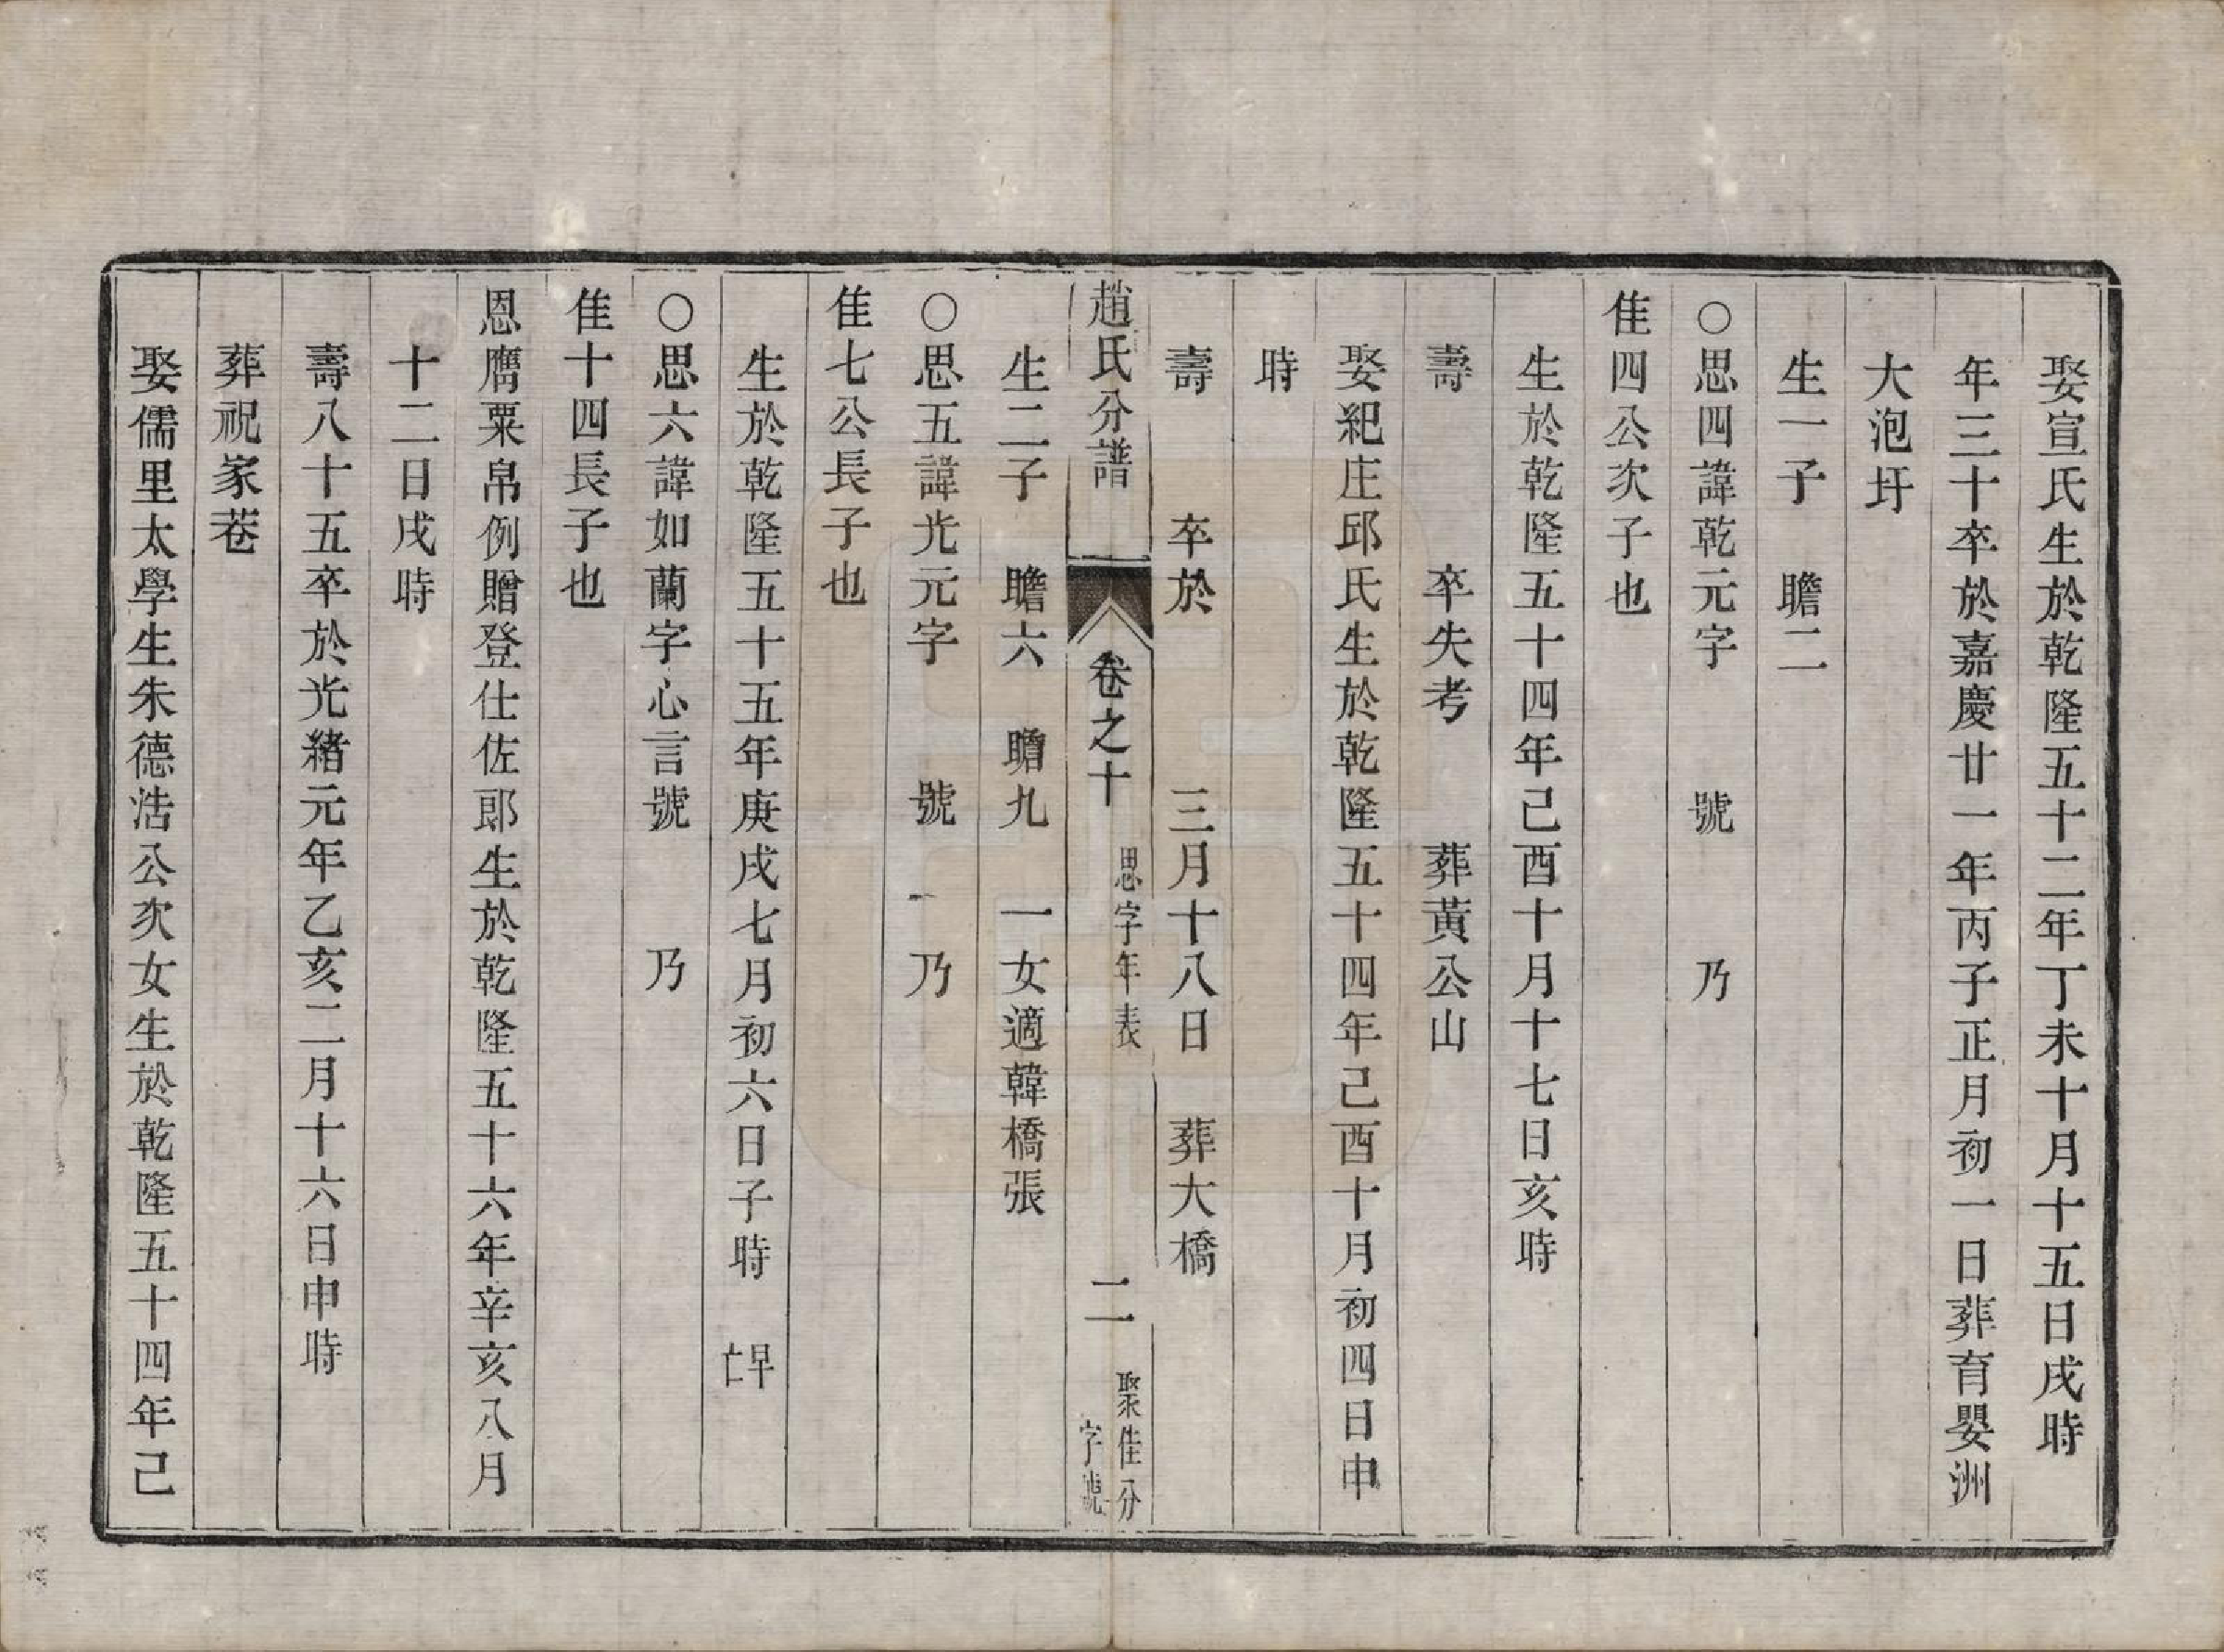 娶宣氏生於乾隆五十二年丁未十月十五日戌時
年三十卒於嘉慶廿一年丙子正月初一日葬育嬰洲
大泡圩
生一子　瞻二
○思四諱乾元字　　號　　乃
隹四公次子也
生於乾隆五十四年己酉十月十七日亥時
壽　　　卒失考　　葬黃公山
娶紀庄邱氏生於乾隆五十四年己酉十月初四日申
時
壽　　卒於　　　三月十八日　葬大橋
趙氏分譜　卷之十　思字年表　二　聚隹分字號
生二子　瞻六　瞻九　一女適韓橋張
○思五諱光元字　　號　　乃
隹七公長子也
生於乾隆五十五年庚戌七月初六日子時　早亡
○思六諱如蘭字心言號　　乃
隹十四長子也
恩膺粟帛例贈登仕佐郎生於乾隆五十六年辛亥八月
十二日戌時
壽八十五卒於光緒元年乙亥二月十六日申時
葬祝家菴
娶儒里太學生朱德浩公次女生於乾隆五十四年己